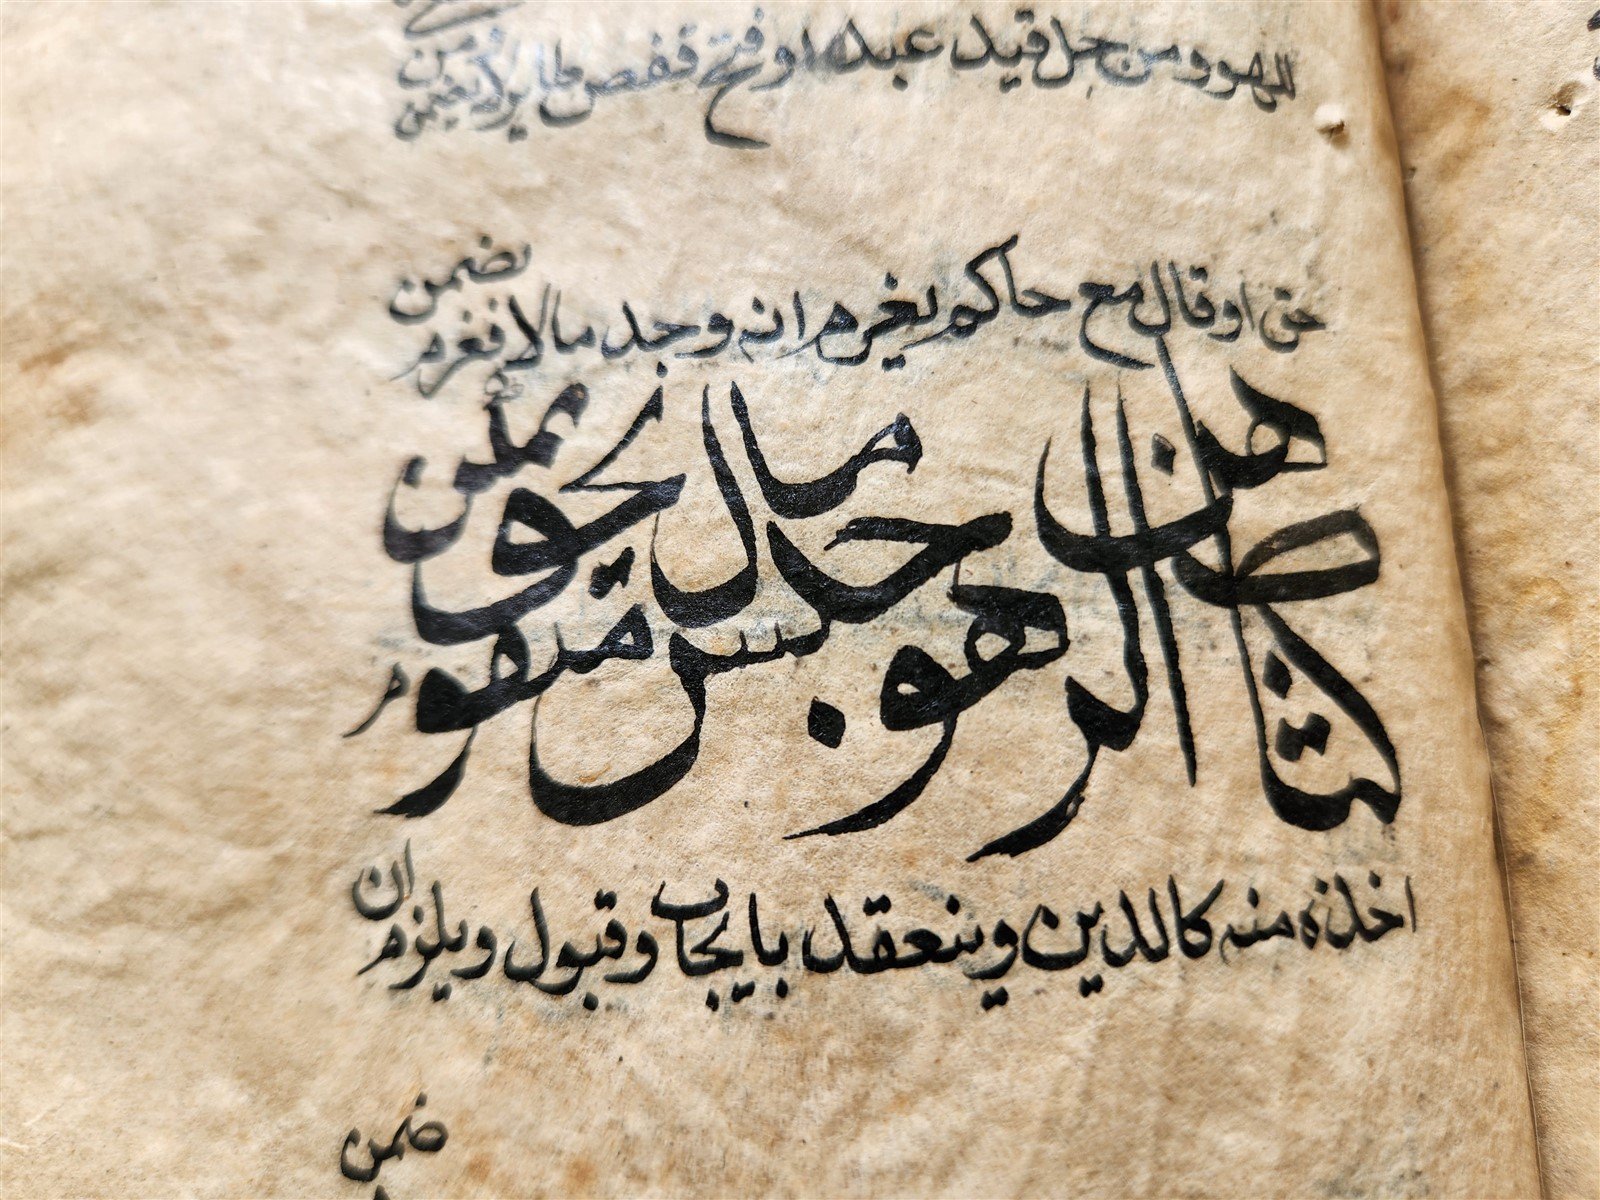 للهو ومن حل قيد عبد او فتح قفص طاير لا يضمن ومن
حق او قال مع حاكم يغرم انه وجد مالا فغرم يضمن
كتاب الرهن هو حبس مال متقوم بحق يمكن
اخذه منه كالدين وينعقد بايجاب وقبول ويلزم ان
ضمن